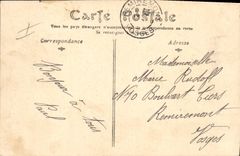 Carte Postale
Tous les pays étrangers n'acceptent pas la correspondance au recto
se renseigner
Correspondance
Adresse
Bonjour à tous
Paul
Mademoiselle
Marie Rudolf
N°10 Boulvart Tiers
Remiremont
Vosges